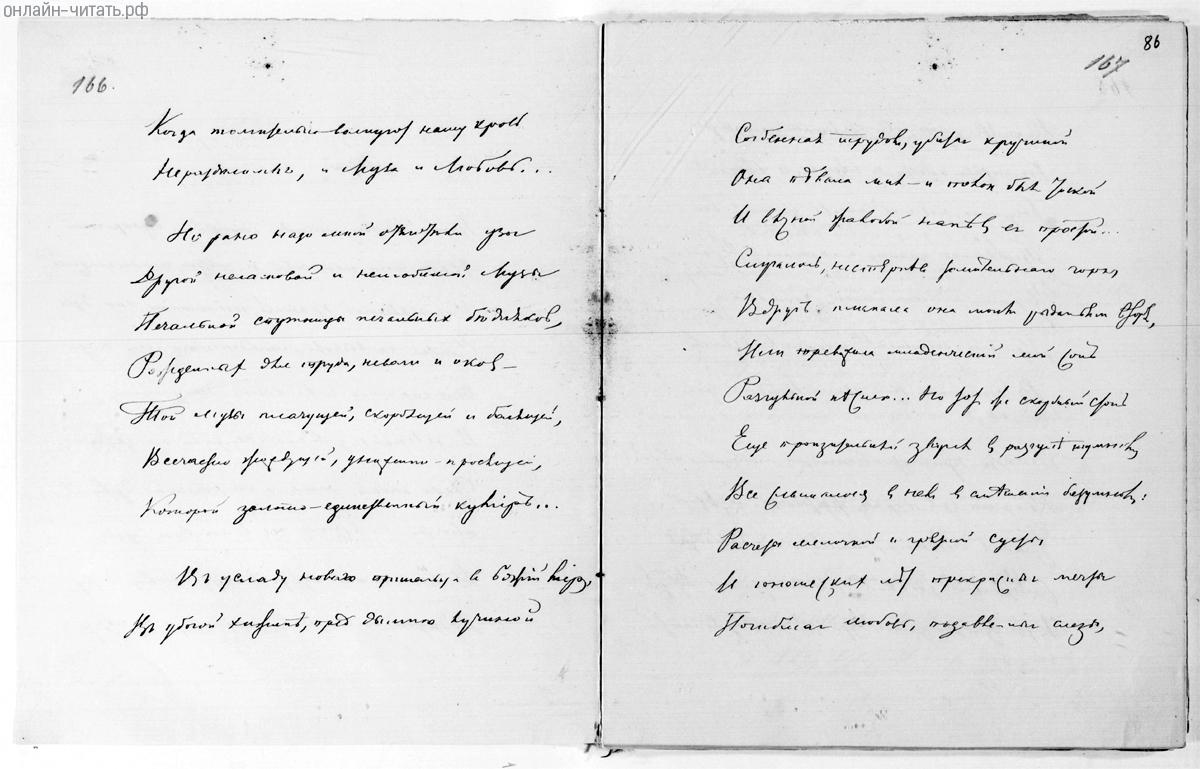 онлайн-читать.рф
166.
Когда томительно волнуют нашу кровь
Нераздѣльныя, и Муза и Любовь...
Но рано надо мной отяготѣли узы
Другой неласковой и нелюбимой Музы
Печальной спутницы печальныхъ бѣдняковъ,
Рожденныхъ для труда, неволи и оковъ –
Той Музы плачущей, скорбящей и болящей,
Всечасно жаждущей, униженно-просящей,
Которой золото – единственный кумиръ...
Въ усладу новаго пришельца въ божій міръ,
Въ убогой хижинѣ, предъ дымною лучиной
86
167
Согбенная трудомъ, убитая кручиной
Она пѣвала мнѣ – и полонъ былъ тоской
И вѣчной жалобой напѣвъ ея простой...
Случалось, не стерпѣвъ томительнаго горя,
Вдругъ плакала она моимъ рыданьямъ вторя,
Или тревожила младенческій мой сонъ
Разгульной пѣсней... Но тотъ же скорбный стонъ
Еще пронзительнѣй звучалъ въ разгулѣ шумномъ
Все слышалося въ немъ въ смѣшеніи безумномъ:
Расчеты мелочной и грязной суеты
И юношескихъ лѣтъ прекрасныя мечты
Погибшая любовь, подавленныя слезы,